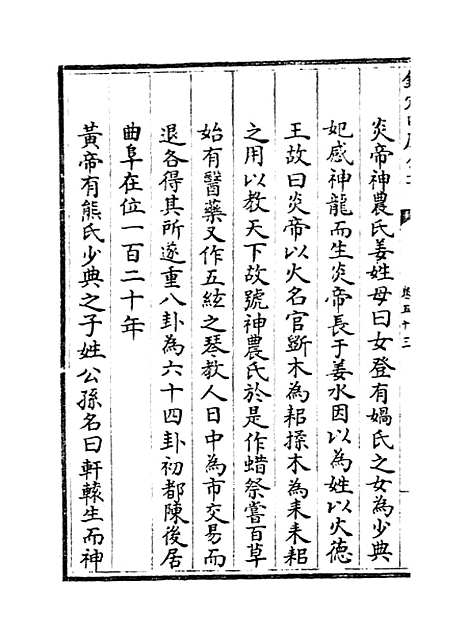 炎帝神農氏姜姓母曰女登有媧氏之女為少典
妃感神龍而生炎帝長于姜水因以為姓以火德
王故曰炎帝以火名官斲木為耜揉木為耒耒耜
之用以教天下故號神農氏於是作蜡祭嘗百草
始有醫藥又作五絃之琴教人日中為市交易而
退各得其所遂重八卦為六十四卦初都陳後居
曲阜在位一百二十年
黃帝有熊氏少典之子姓公孫名曰軒轅生而神